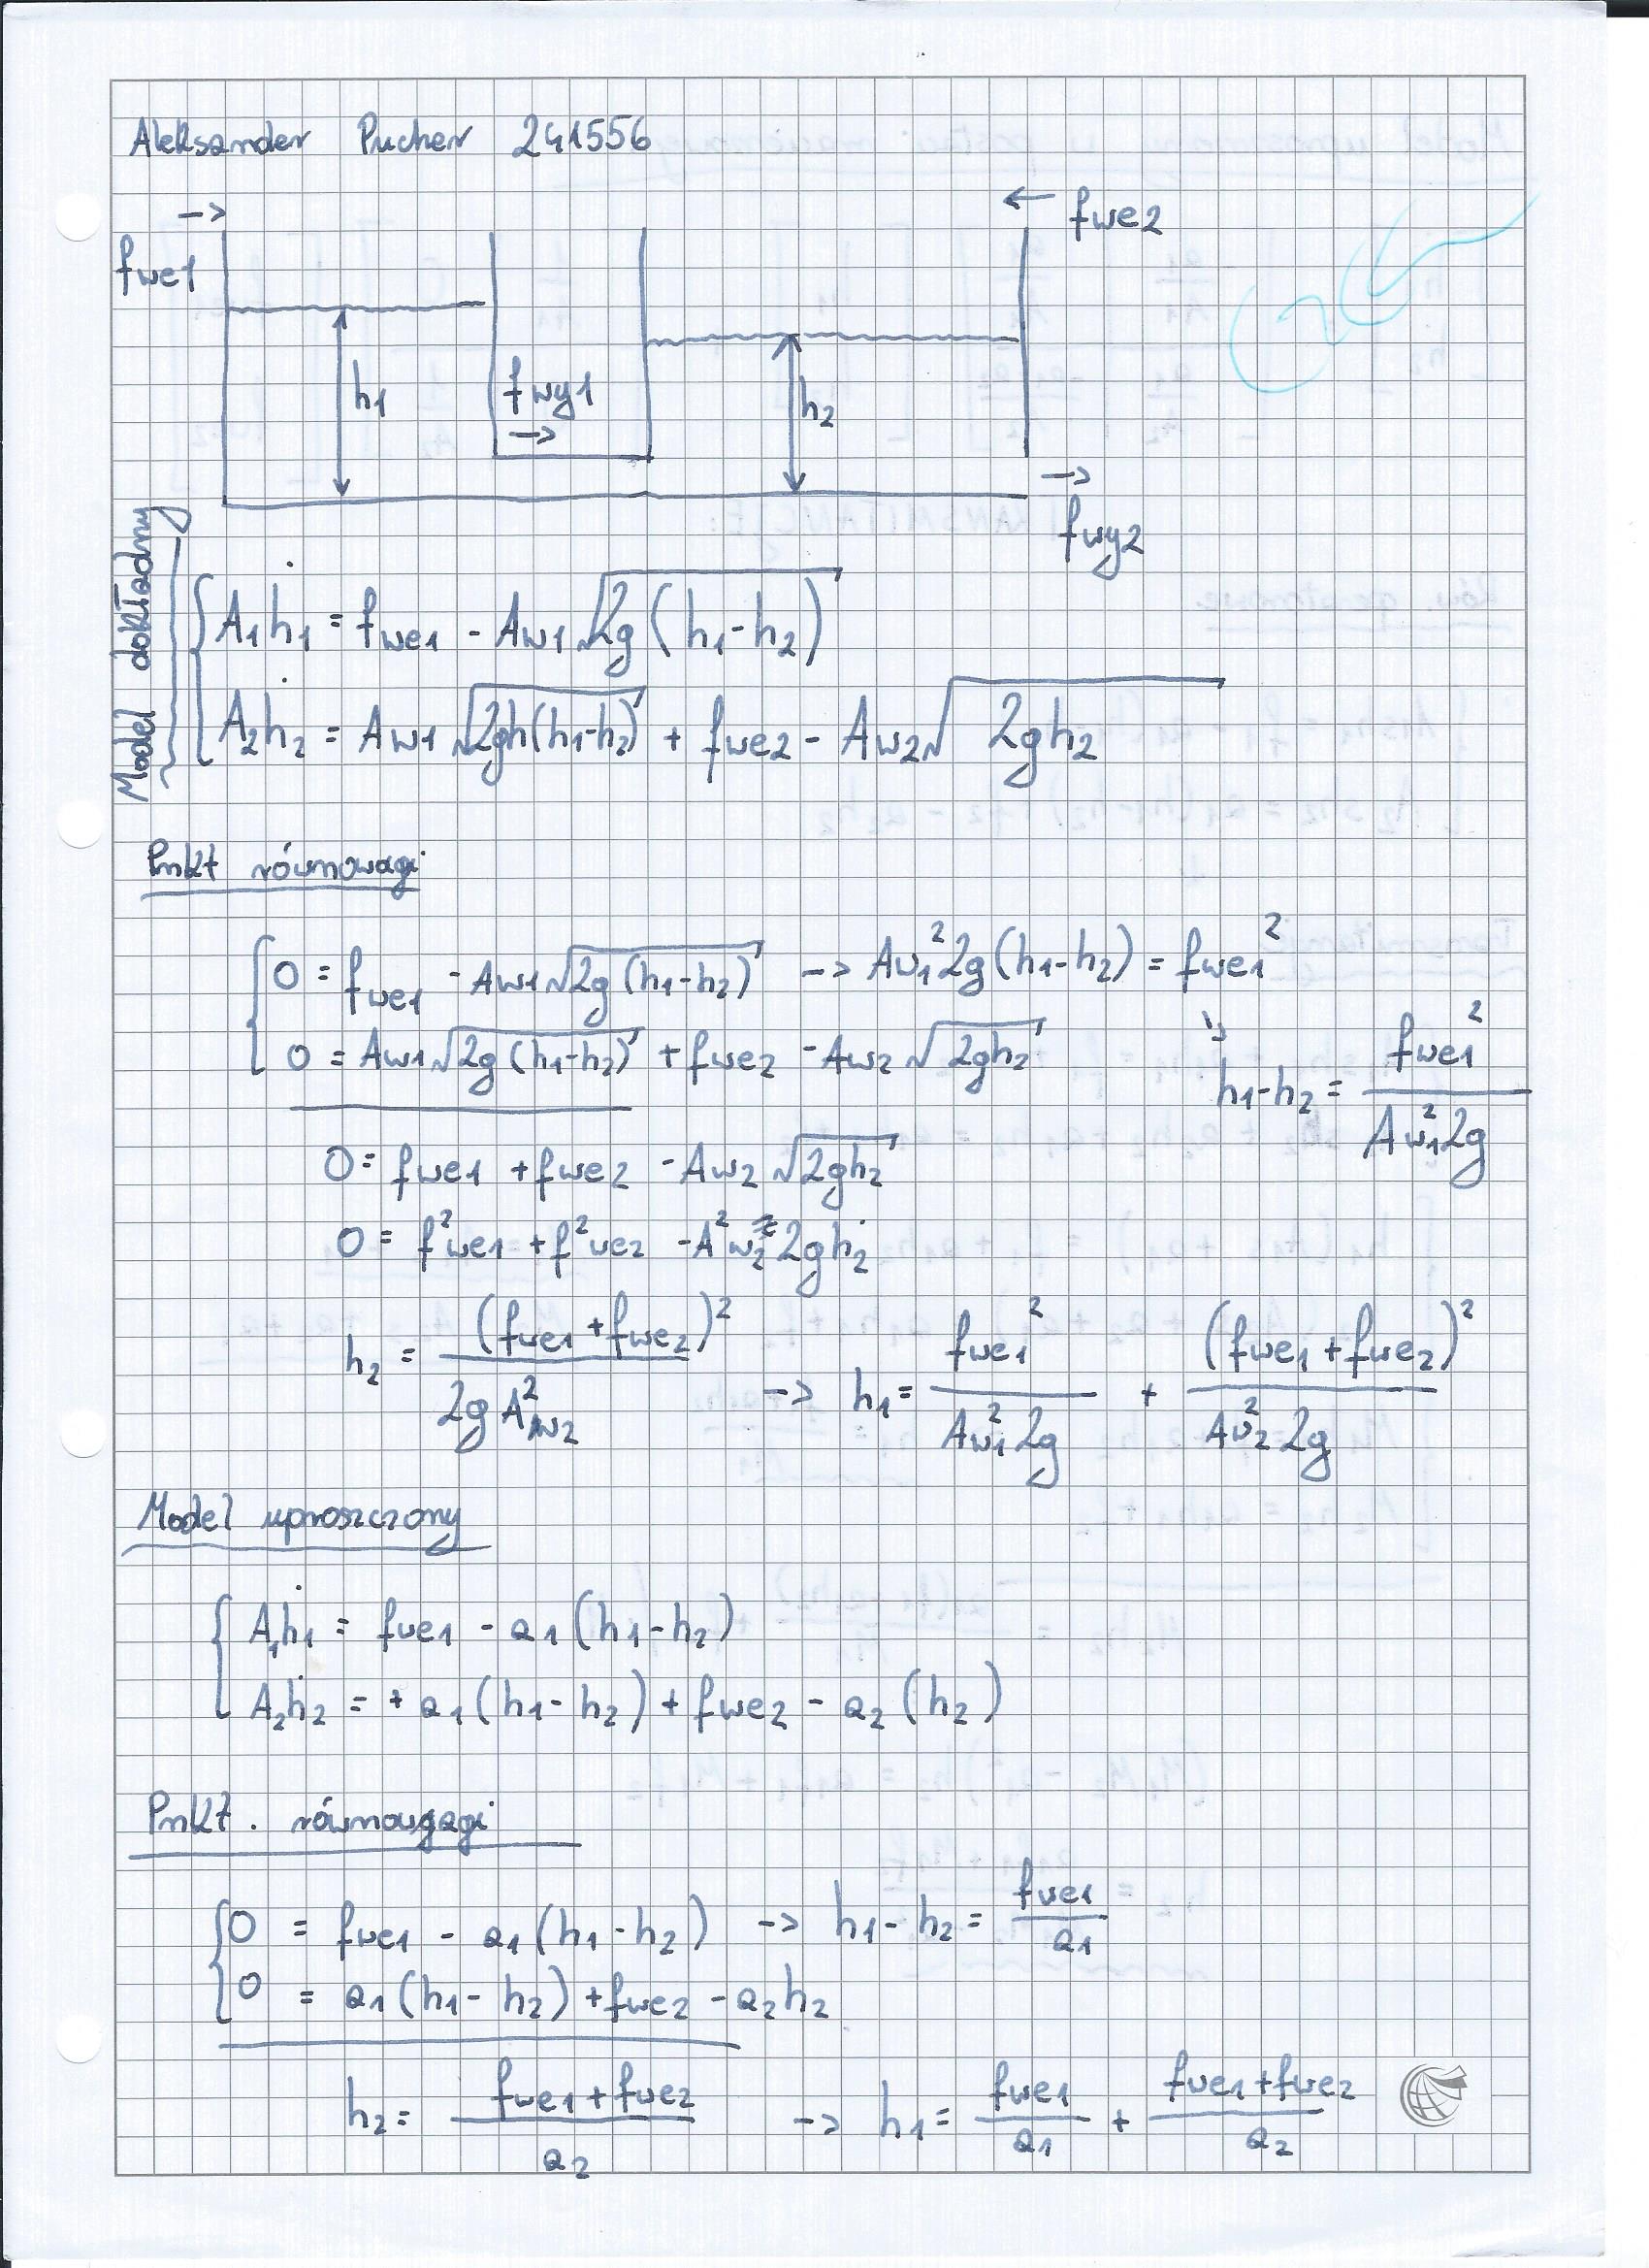 Aleksander Pucher 241556
→ ← fwe2
fwe1
h1 fwy1 h2
→ →
fwy2
Model dokładny
A1ḣ1 = fwe1 - Aw1√(2g(h1-h2))
A2ḣ2 = Aw1√(2gh(h1-h2)) + fwe2 - Aw2√(2gh2)
Pnkt równowagi
0 = fwe1 - Aw1√(2g(h1-h2)) -> Aw1²2g(h1-h2) = fwe1²
0 = Aw1√(2g(h1-h2)) + fwe2 - Aw2√(2gh2)
h1-h2 = fwe1² / Aw1²2g
0 = fwe1 + fwe2 - Aw2√(2gh2)
0 = f²we1 + f²we2 - A²w2 2gh2
h2 = (fwe1+fwe2)² / 2gA²w2 -> h1 = fwe1² / Aw1²2g + (fwe1+fwe2)² / Aw2²2g
Model uproszczony
A1ḣ1 = fwe1 - a1(h1-h2)
A2ḣ2 = + a1(h1-h2) + fwe2 - a2(h2)
Pnkt. równowagi
0 = fwe1 - a1(h1-h2) -> h1-h2 = fwe1 / a1
0 = a1(h1-h2) + fwe2 - a2h2
h2 = fwe1+fwe2 / a2 -> h1 = fwe1 / a1 + fwe1+fwe2 / a2